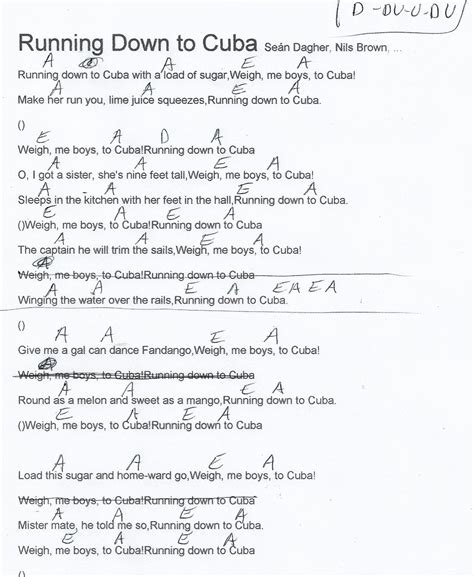 D -DU-U-DU
Running Down to Cuba Seán Dagher, Nils Brown, ...
A A E A
Running down to Cuba with a load of sugar,Weigh, me boys, to Cuba!
A A E A
Make her run you, lime juice squeezes,Running down to Cuba.
()
E A D A
Weigh, me boys, to Cuba!Running down to Cuba
A A E A
O, I got a sister, she's nine feet tall,Weigh, me boys, to Cuba!
A A E A
Sleeps in the kitchen with her feet in the hall,Running down to Cuba.
E A E A
()Weigh, me boys, to Cuba!Running down to Cuba
A A E A
The captain he will trim the sails,Weigh, me boys, to Cuba!
Weigh, me boys, to Cuba!Running down to Cuba
A A E A EA EA
Winging the water over the rails,Running down to Cuba.
()
A A E A
Give me a gal can dance Fandango,Weigh, me boys, to Cuba!
Weigh, me boys, to Cuba!Running down to Cuba
A A E A
Round as a melon and sweet as a mango,Running down to Cuba.
E A E A
()Weigh, me boys, to Cuba!Running down to Cuba
A A E A
Load this sugar and home-ward go,Weigh, me boys, to Cuba!
Weigh, me boys, to Cuba!Running down to Cuba
A A E A
Mister mate, he told me so,Running down to Cuba.
E A E A
Weigh, me boys, to Cuba!Running down to Cuba
()